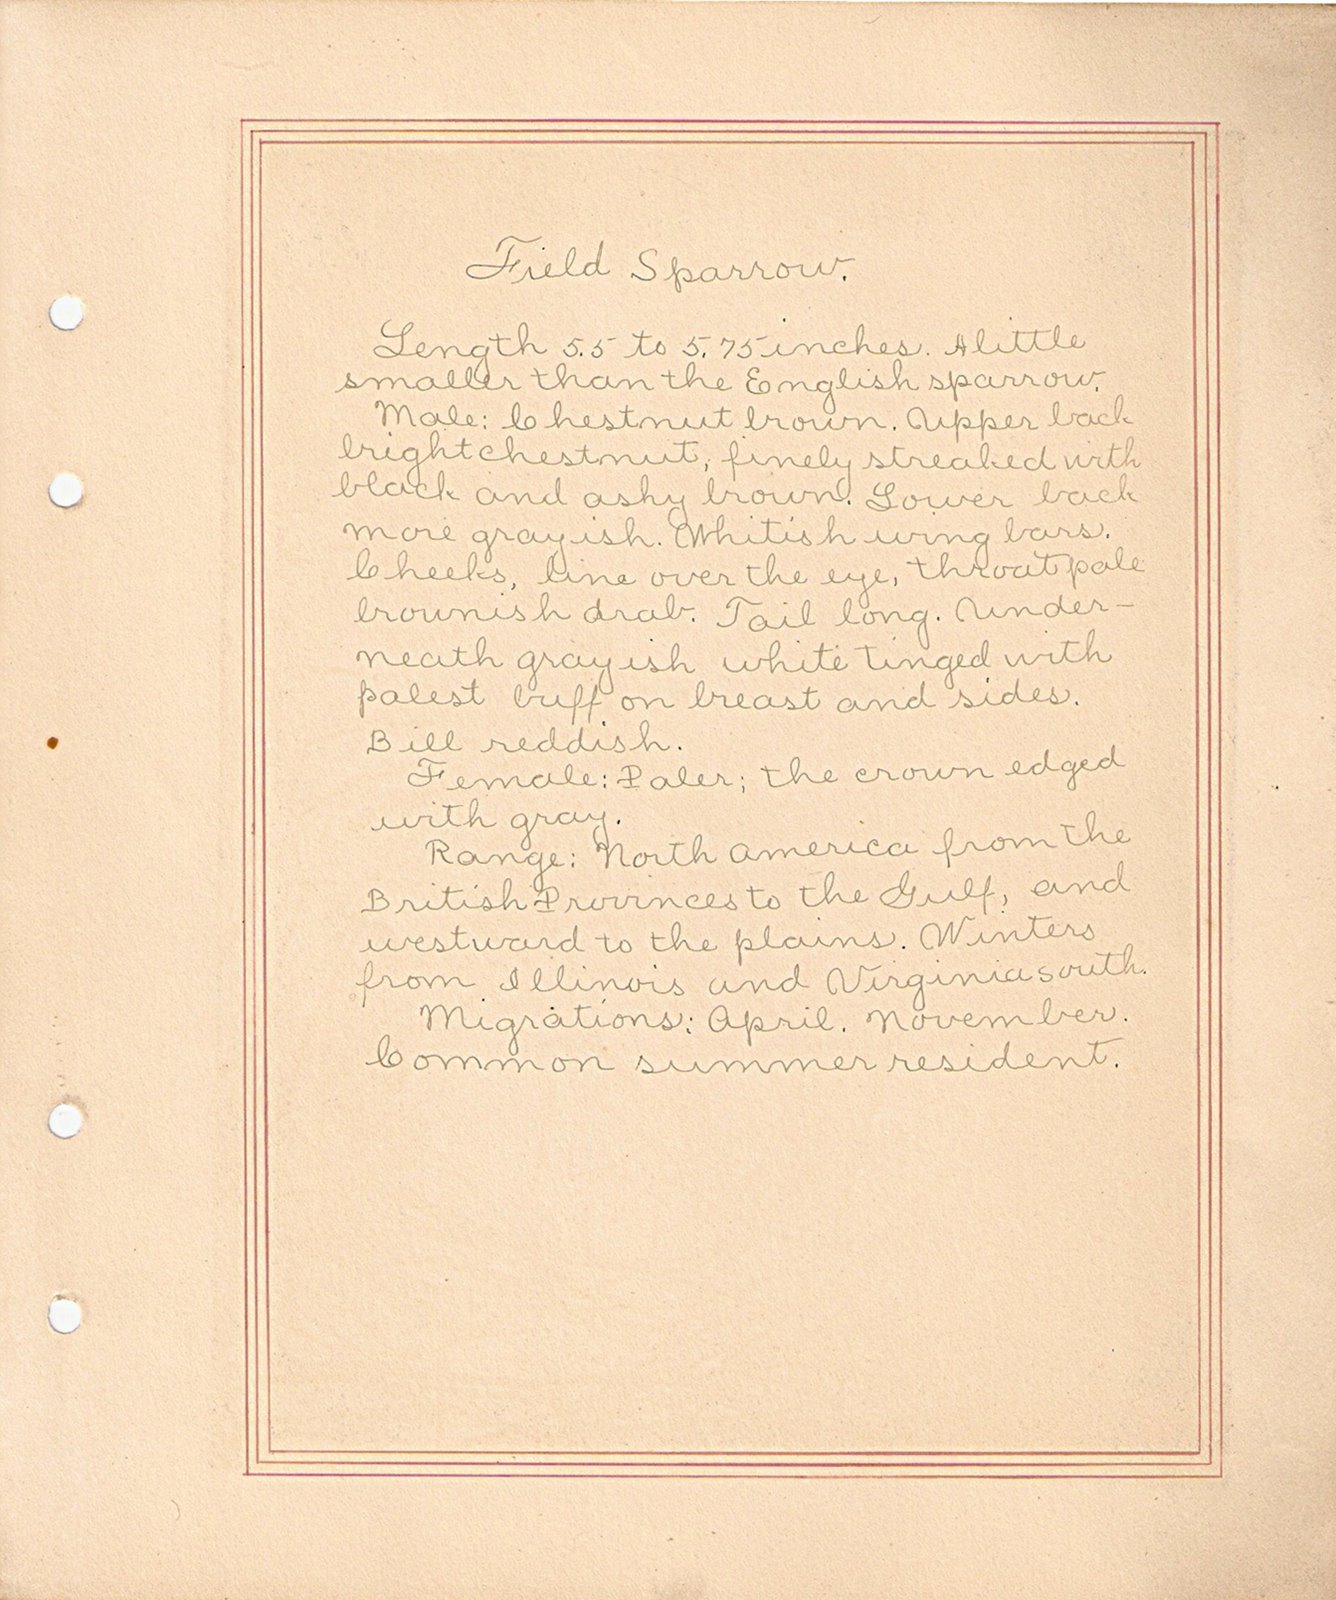 Field Sparrow.
Length 5.5 to 5.75 inches. A little
smaller than the English sparrow.
Male: Chestnut brown. Upper back
bright chestnut, finely streaked with
black and ashy brown. Lower back
more grayish. Whitish wing bars.
Cheeks, line over the eye, throat pale
brownish drab. Tail long. Under-
neath grayish white tinged with
palest buff on breast and sides.
Bill reddish.
Female: Paler; the crown edged
with gray.
Range: North America from the
British Provinces to the Gulf, and
westward to the plains. Winters
from Illinois and Virginia south.
Migrations: April. November.
Common summer resident.